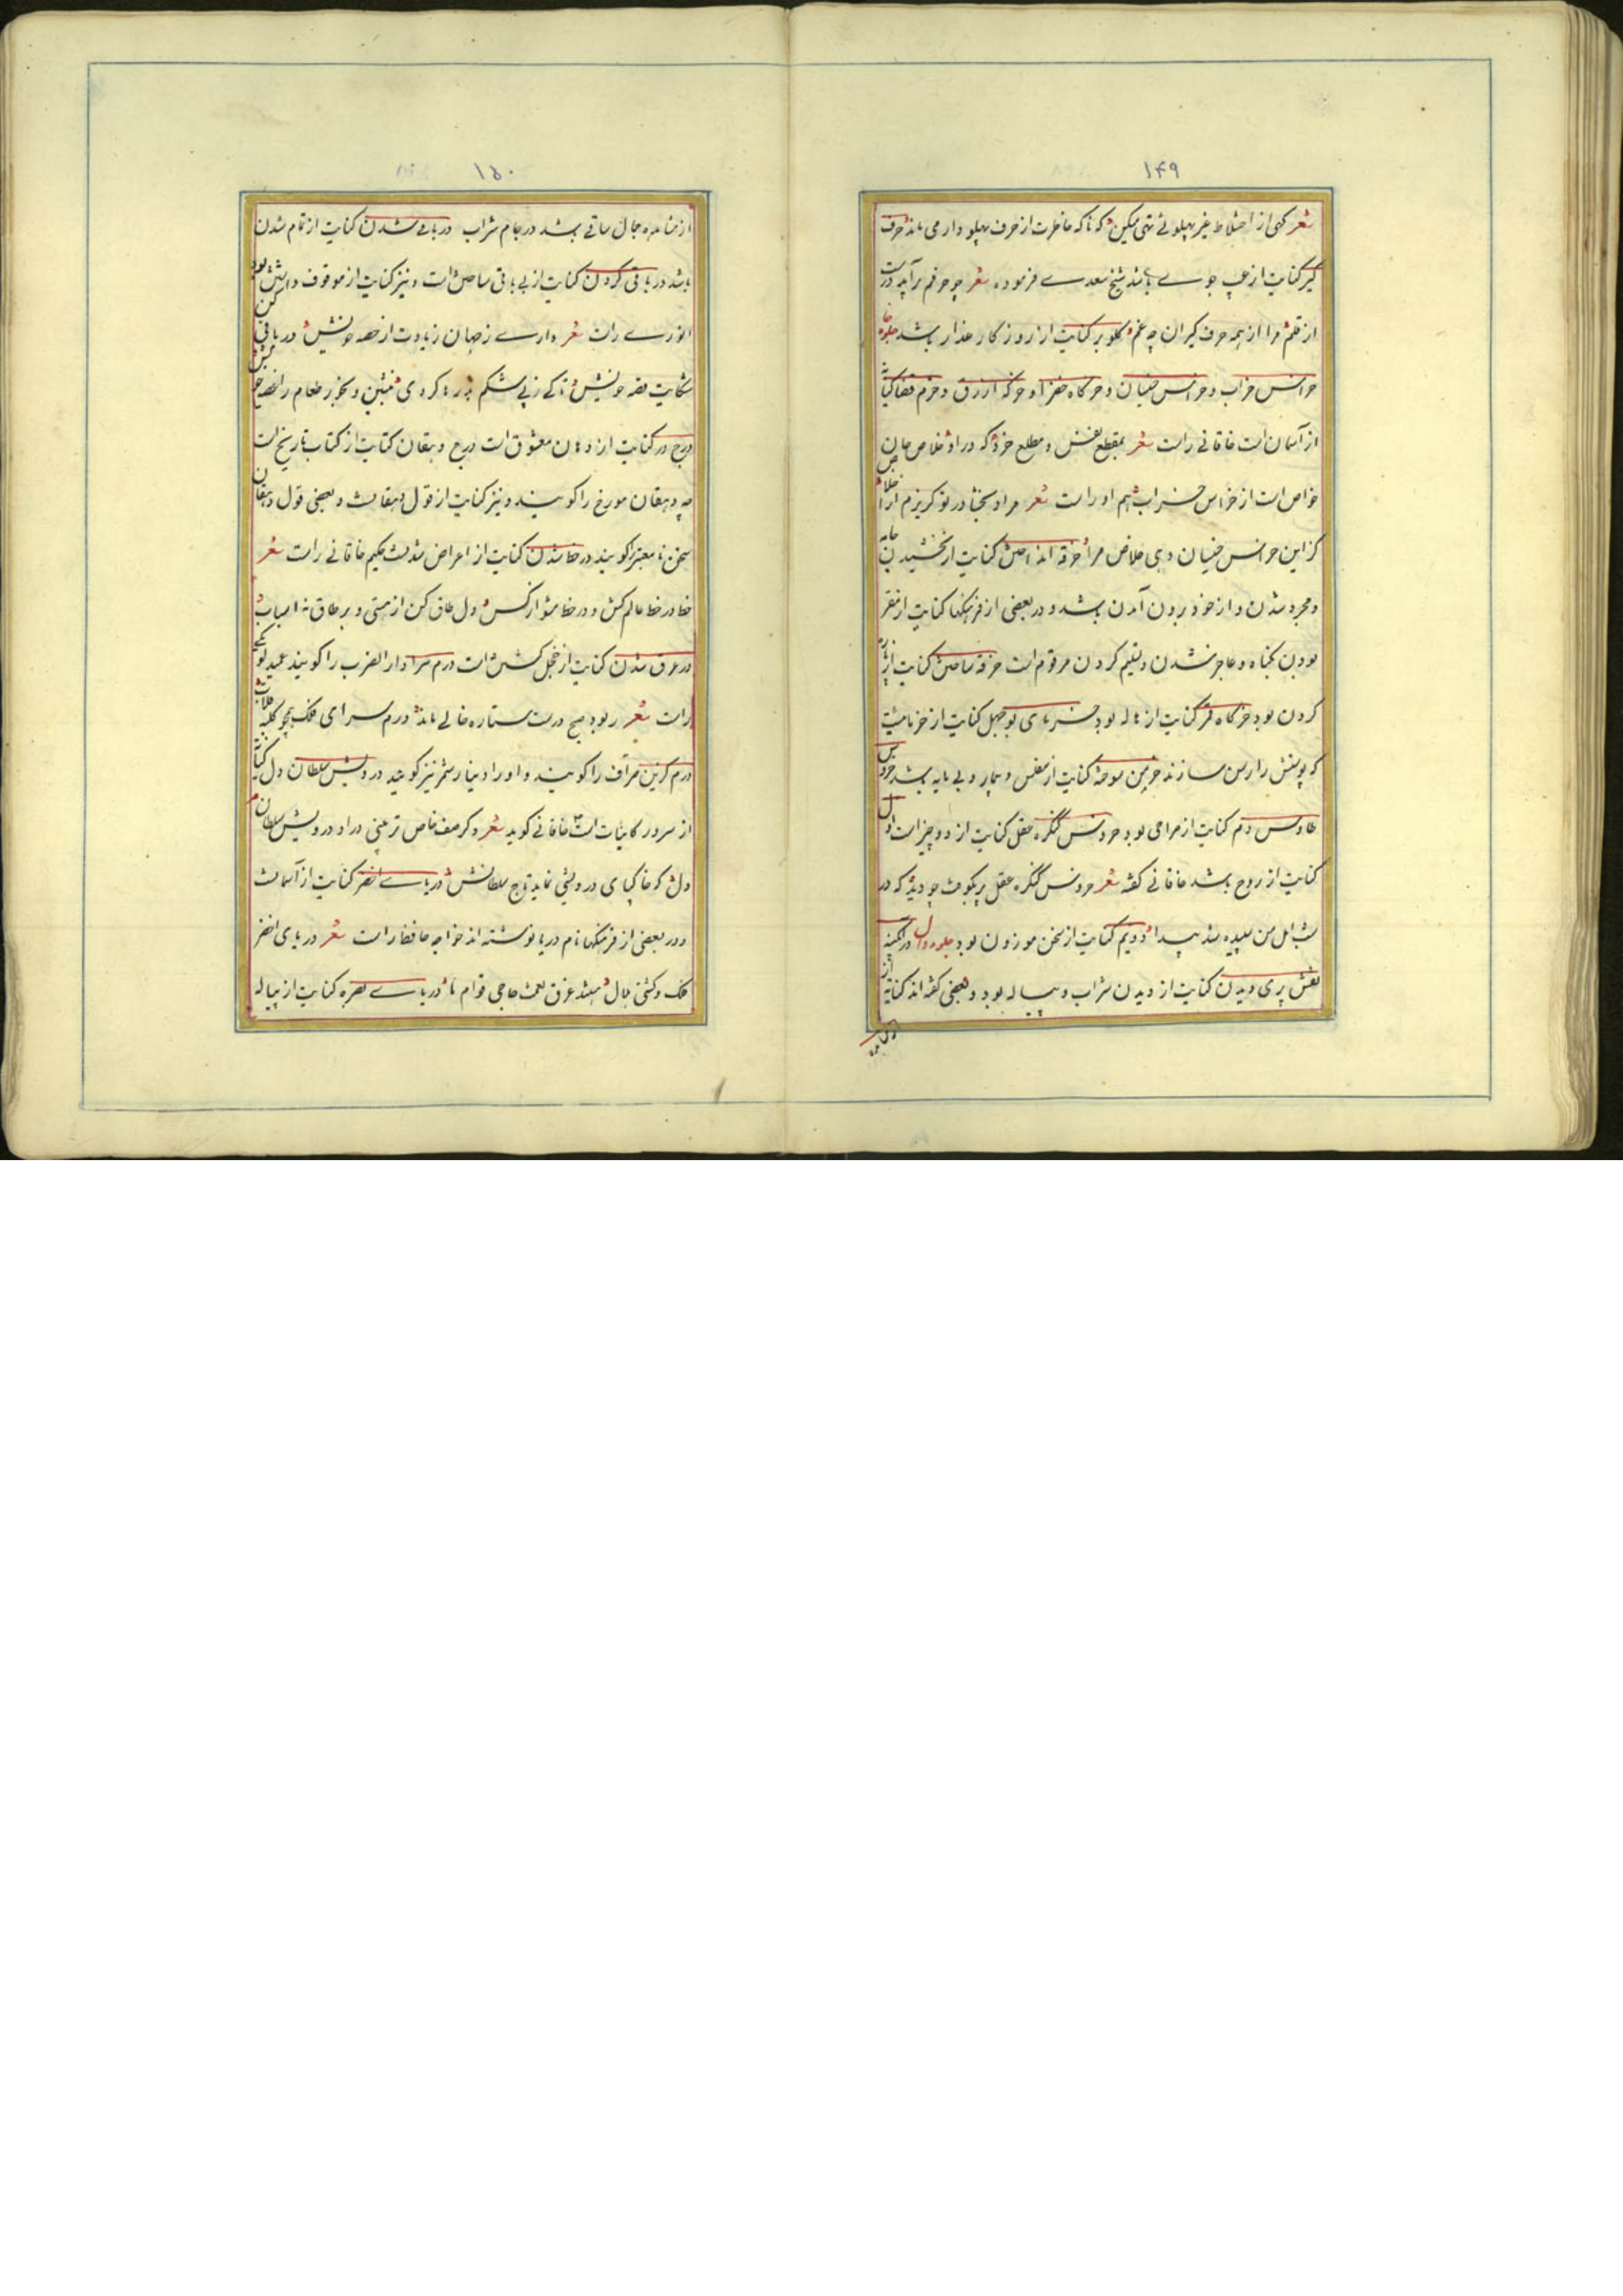 ۱۴۹
شعر کهی از اختلاط غیر پهلوئے تهی میکن که ناکه خاطرت از حرف پهلو دار می ماند حرف
گیر کنایت از عیب جوے باشد شیخ سعدے فرموده شعر چو حرفم برآید درست
از قلم مرا از همه حرف گیران چه غم گلو بر کنایت از روزگار غدار باشد
خراس خراب و خراس خسیان و خرگاه خضرا و خرگه ازرق و خرم فضا کنایة
از آسمان است خاقانے راست شعر بمقطع نفس و مطلع خرد که در او خلاص جان
خواص است از خراس خراب هم او راست شعر مرا در تو گریزم از
کزاین خراس خسیان دهی خلاص مرا خرقه انداختن کنایت از بخشیدن جامه
و مجرد شدن و از خود برون آمدن باشد و در بعضی از فرهنگها کنایت از مقر
بودن بگناه و عاجز شدن و تسلیم کردن مرقوم است خرقه ساختن کنایت از پاره
کردن بود خرگاه قمر کنایت از هاله بود خرمای بوجهل کنایت از خرمائیست
که پوستش را رسن سازند خرمن سوخته کنایت از مفلس و بی مایه باشد خروس
طاوس دم کنایت از صراحی بود خروس کنگره عقل کنایت از دو چیز است اول
کنایت از روح باشد خاقانے گفته شعر خروس کنگره عقل پر بکوفت چو دید که در
شب امل من سپیده شد پیدا دویم کنایت از سخن موزون بود
نقش پری دیدن کنایت از دیدن شراب و پیاله بود و بعضی گفته اند کنایة از
۱۵۰
از مشاهده جمال ساقے باشد در جام شراب در باقے شدن کنایت از تمام شدن
باشد در باقی کردن کنایت از بے باقی ساختن است و نیز کنایت از موقوف داشتن بود
انورے راست شعر دارے ز جهان زیادت از حصه خویش در باقی کن
شکایت قصه خویش رها کردی بنشین و بخور طعام
درج در کنایت از دهان معشوق است درج دهقان کنایت از کتاب تاریخ است
چه دهقان مورخ را گویند و نیز کنایت از قول دهقانست و بعضی قول دهقان
سخن نا معتبر را گویند در خط شدن کنایت از اعراض شدنست حکیم خاقانے راست شعر
خط در خط عالم کش و در خط مشو از کس دل طاق کن از هستی و بر طاق نه اسباب
در عرق شدن کنایت از خجل گشتن است درم سرا دار الضرب را گویند عمید لوبکی
راست شعر ربود صبح درست ستاره خالے ماند درم سرای فلک همچو کلبه
درم گزین صراف را گویند و او را دینار شمر نیز گویند درویش سلطان دل کنایة
از سرور کاینات است خاقانے گوید شعر و گر صف خاص تر بینی در او درویش سلطان
دل که خاک پای درویشی نماید تاج سلطانش دریاے اخضر کنایت از آسمانست
و در بعضی از فرهنگها نام دریا نوشته اند خواجه حافظ راست شعر دریای اخضر
فلک و کشتی هلال هستند غرق نعمت حاجی قوام ما دریاے بصره کنایت از پیاله